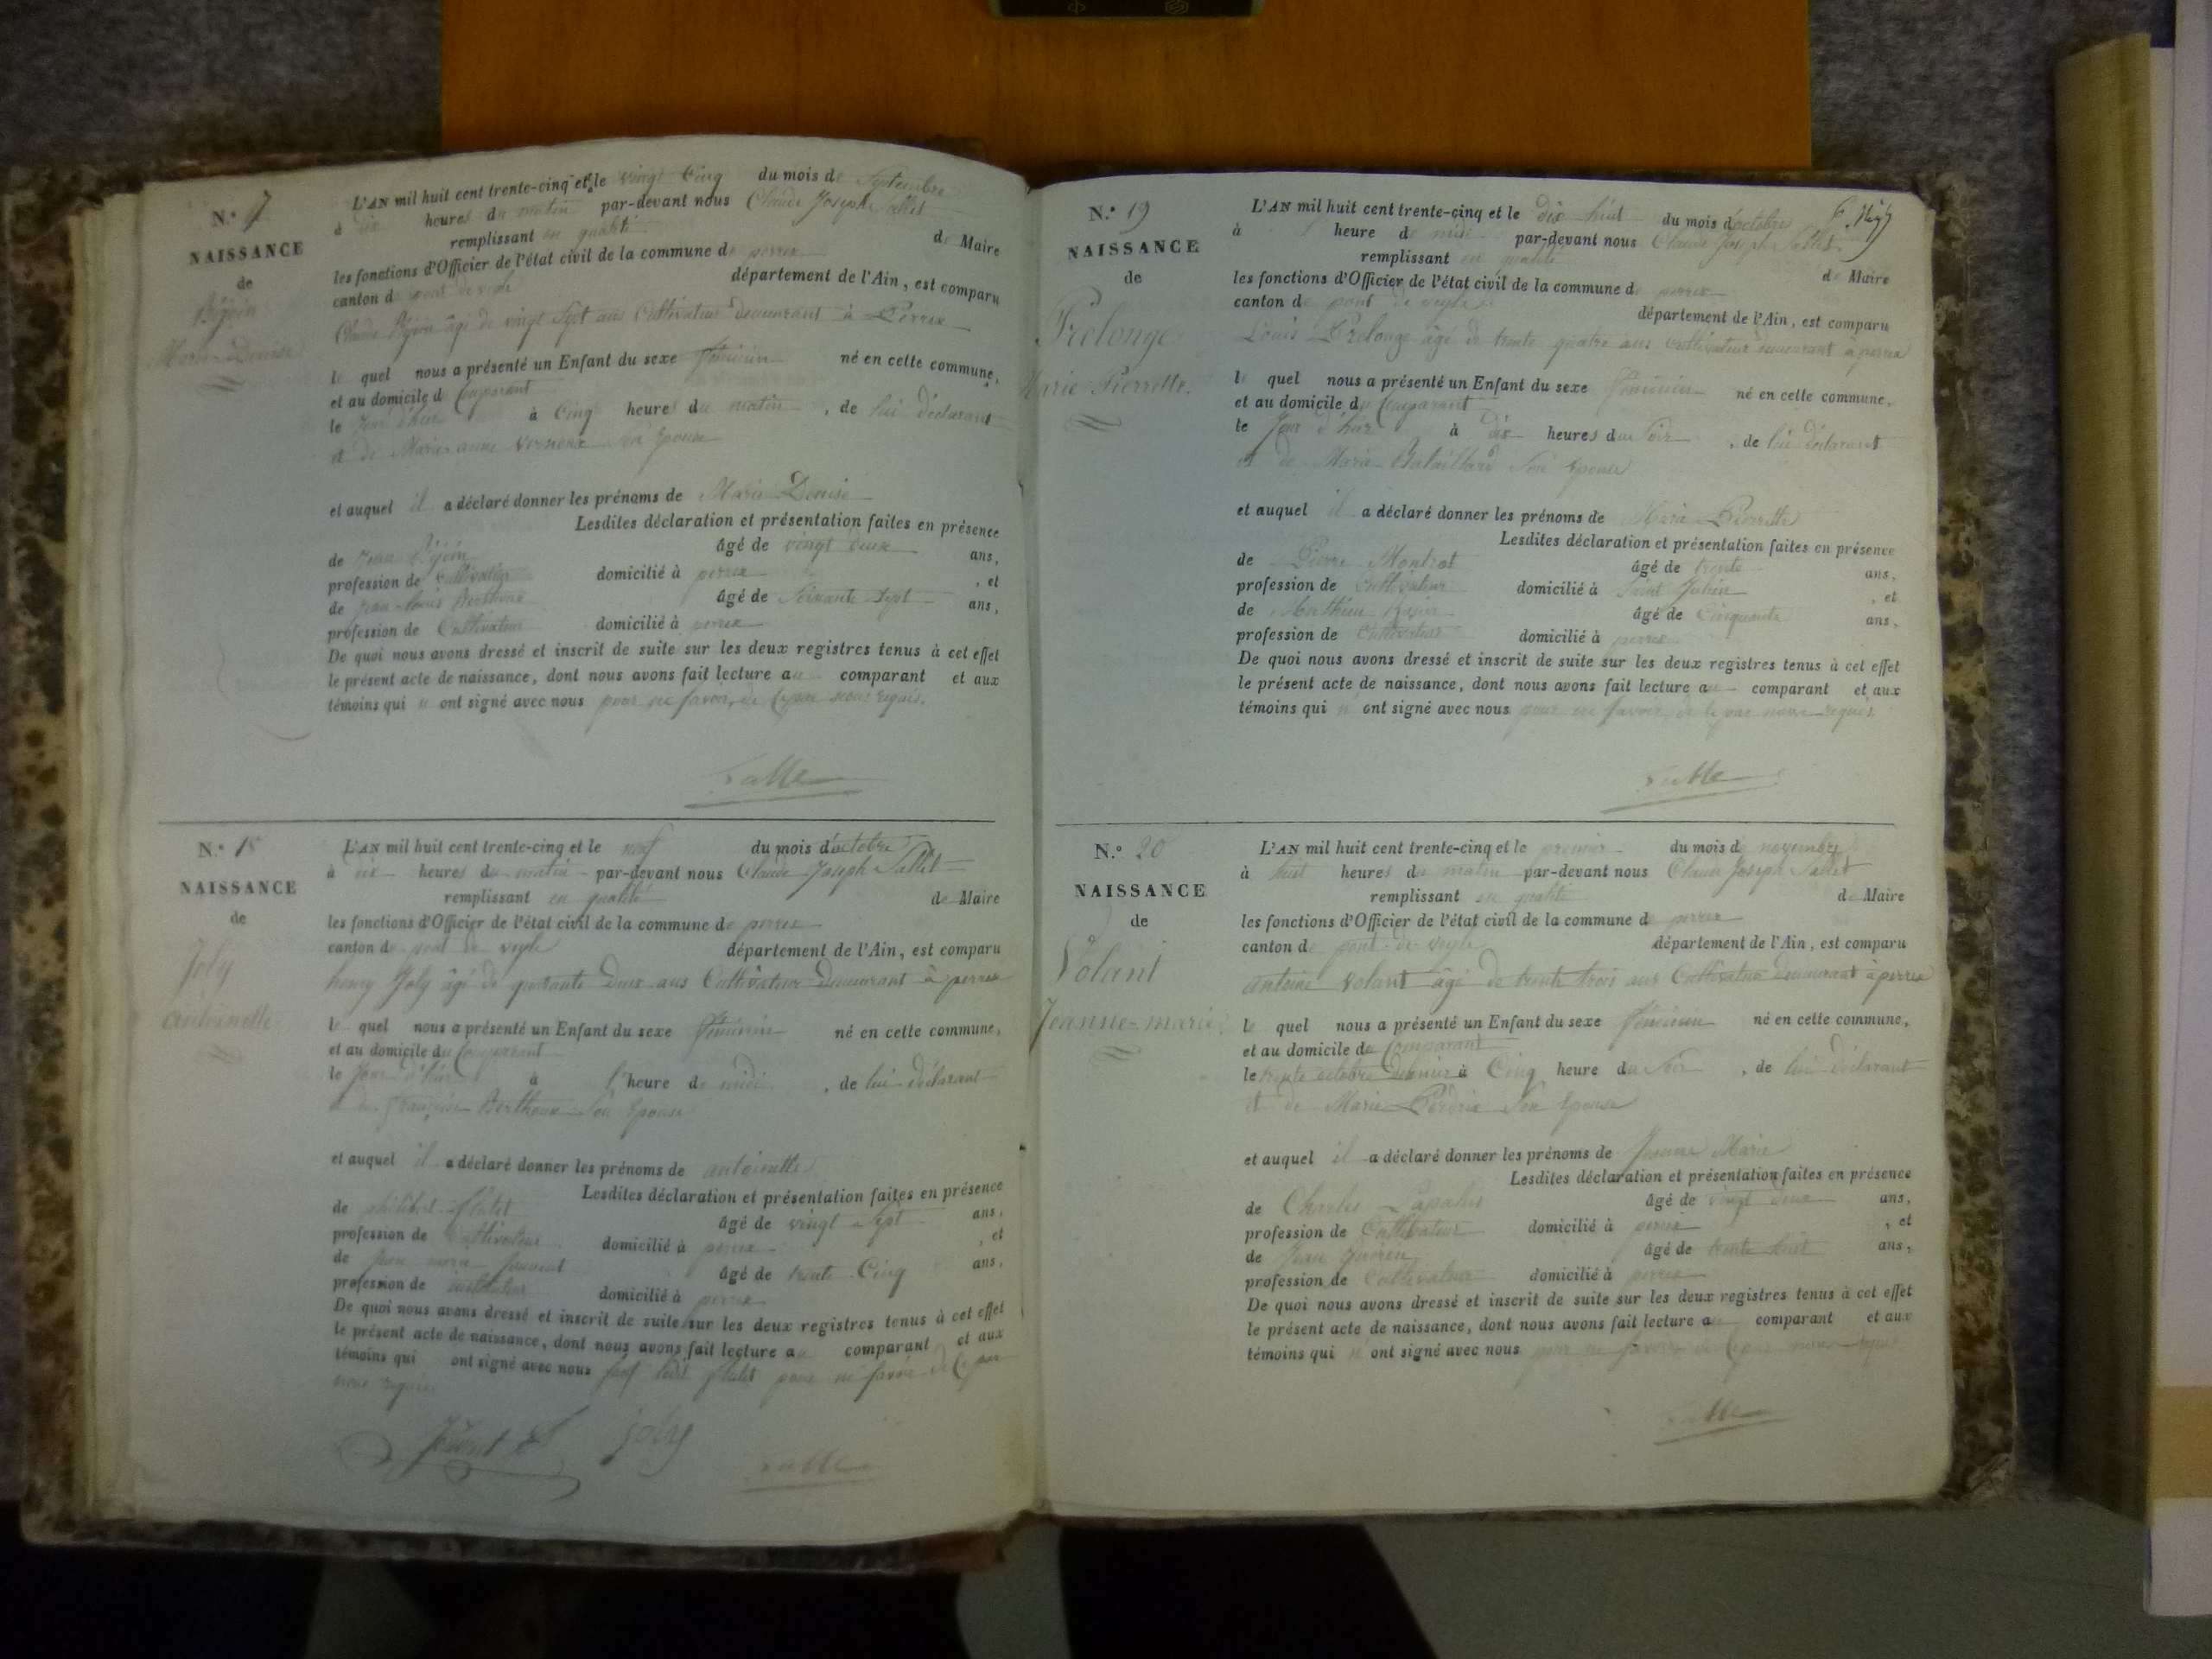 N.° 7
NAISSANCE
de
Marie Denise
L'AN mil huit cent trente-cinq et le vingt Cinq du mois de Septembre
à dix heures du matin par-devant nous Claude Joseph
remplissant en qualité de Maire
les fonctions d'Officier de l'état civil de la commune de perrex
canton de pont de veyle département de l'Ain, est comparu
Claude âgé de vingt Sept ans Cultivateur demeurant à Perrex
le quel nous a présenté un Enfant du sexe féminin né en cette commune,
et au domicile du Comparant
le Jour d'hier à Cinq heures du matin, de lui déclarant
et de Marie anne son Epouse
et auquel il a déclaré donner les prénoms de Marie Denise
Lesdites déclaration et présentation faites en présence
de Jean âgé de vingt deux ans,
profession de Cultivateur domicilié à perrex, et
de Jean-Louis âgé de Soixante Sept ans,
profession de Cultivateur domicilié à perrex
De quoi nous avons dressé et inscrit de suite sur les deux registres tenus à cet effet
le présent acte de naissance, dont nous avons fait lecture au comparant et aux
témoins qui n ont signé avec nous pour ne savoir, de ce par nous requis.
N.°
NAISSANCE
de
Joly
antoinette
L'AN mil huit cent trente-cinq et le neuf du mois d'octobre
à dix heures du matin par-devant nous Claude Joseph Sallet
remplissant en qualité de Maire
les fonctions d'Officier de l'état civil de la commune de perrex
canton de pont de veyle département de l'Ain, est comparu
henry Joly âgé de quarante Deux ans Cultivateur Demeurant à perrex
le quel nous a présenté un Enfant du sexe féminin né en cette commune,
et au domicile du Comparant
le Jour d'hier à l'heure de midi, de lui déclarant
et de Françoise Son Epouse
et auquel il a déclaré donner les prénoms de antoinette
Lesdites déclaration et présentation faites en présence
de philibert flutet âgé de vingt Sept ans,
profession de Cultivateur domicilié à perrex, et
de Jean âgé de trente Cinq ans,
profession de instituteur domicilié à perrex
De quoi nous avons dressé et inscrit de suite sur les deux registres tenus à cet effet
le présent acte de naissance, dont nous avons fait lecture au comparant et aux
témoins qui ont signé avec nous sauf ledit flutet pour ne savoir de ce par
nous requis
joly
N.° 19
NAISSANCE
de
Prelonge
Marie Pierrette.
L'AN mil huit cent trente-cinq et le dix huit du mois d'octobre
à heure de midi par-devant nous Claude Joseph Sallet
remplissant en qualité de Maire
les fonctions d'Officier de l'état civil de la commune de perrex
canton de pont de veyle département de l'Ain, est comparu
Louis Prelonge âgé de trente quatre ans Cultivateur demeurant à perrex
le quel nous a présenté un Enfant du sexe féminin né en cette commune,
et au domicile du Comparant
le Jour d'hier à dix heures du Soir, de lui déclarant
et de Marie Bataillard Son Epouse
et auquel il a déclaré donner les prénoms de Marie Pierrette
Lesdites déclaration et présentation faites en présence
de Pierre Montrat âgé de trente ans,
profession de Cultivateur domicilié à Saint Julien, et
de Mathieu âgé de Cinquante ans,
profession de Cultivateur domicilié à perrex
De quoi nous avons dressé et inscrit de suite sur les deux registres tenus à cet effet
le présent acte de naissance, dont nous avons fait lecture au comparant et aux
témoins qui n ont signé avec nous pour ne savoir de ce par nous requis
N.° 20
NAISSANCE
de
Volant
Jeanne-marie
L'AN mil huit cent trente-cinq et le premier du mois de novembre
à huit heures du matin par-devant nous Claude Joseph Sallet
remplissant en qualité de Maire
les fonctions d'Officier de l'état civil de la commune de perrex
canton de pont de veyle département de l'Ain, est comparu
antoine Volant âgé de trente trois ans Cultivateur demeurant à perrex
le quel nous a présenté un Enfant du sexe féminin né en cette commune,
et au domicile du Comparant
le trente octobre dernier à Cinq heure du Soir, de lui déclarant
et de Marie Perdrix Son Epouse
et auquel il a déclaré donner les prénoms de Jeanne Marie
Lesdites déclaration et présentation faites en présence
de Charles âgé de vingt deux ans,
profession de Cultivateur domicilié à perrex, et
de Jean Guérin âgé de trente huit ans,
profession de Cultivateur domicilié à perrex
De quoi nous avons dressé et inscrit de suite sur les deux registres tenus à cet effet
le présent acte de naissance, dont nous avons fait lecture au comparant et aux
témoins qui n ont signé avec nous pour ne savoir de ce par nous requis